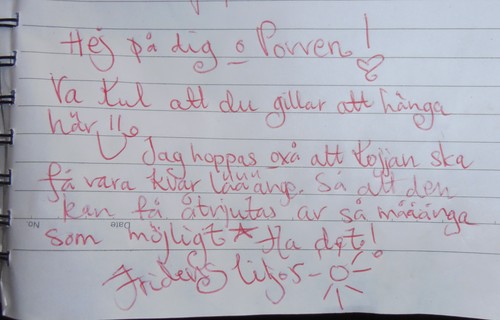 Hej på dig o Povven!
Va kul att du gillar att hänga
här!!
Jag hoppas oxå att kojjan ska
få vara kvar lääänge. Så att den
kan få åtnjutas av så måånga
som möjligt Ha det!
bate No.